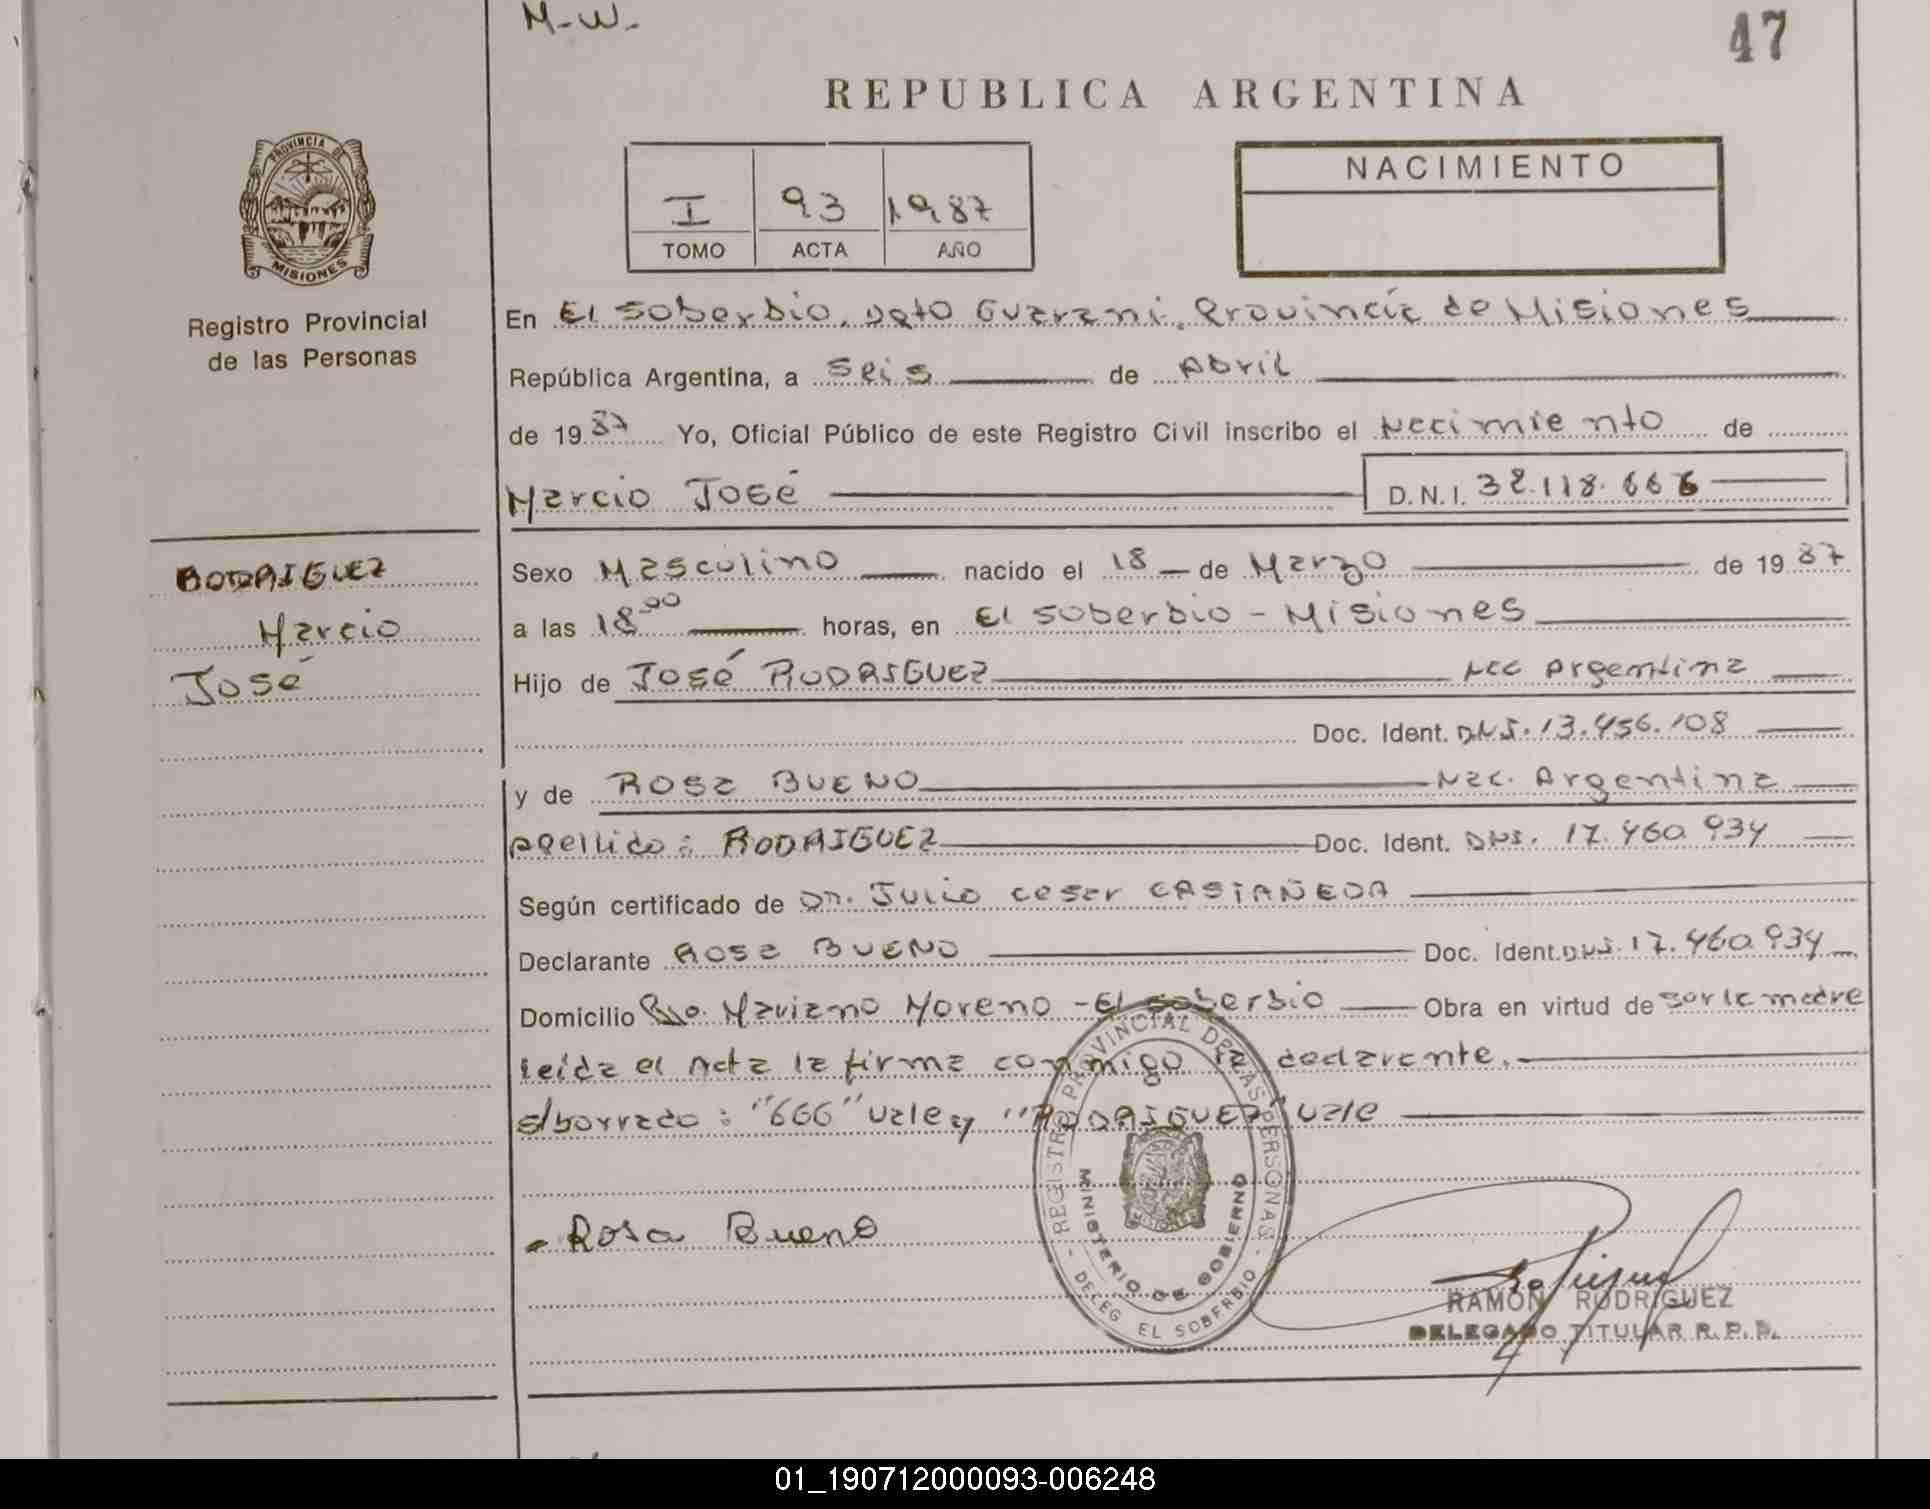 M-W-
47
REPUBLICA ARGENTINA
PROVINCIA DE
MISIONES
Registro Provincial
de las Personas
I 93 1987
TOMO ACTA AÑO
NACIMIENTO
En El Soberbio, Dpto Guarani, Provincia de Misiones
República Argentina, a seis de Abril
de 1987 Yo, Oficial Público de este Registro Civil inscribo el Nacimiento de
Marcio José D.N.I. 32.118.666
RODRIGUEZ
Marcio
José
Sexo Masculino nacido el 18 de Marzo de 1987
a las 18 00 horas, en El Soberbio - Misiones
Hijo de José RODRIGUEZ Nac Argentina
Doc. Ident. DNI. 13.456.108
y de Rosa BUENO Nac. Argentina
Apellido: RODRIGUEZ Doc. Ident. DNI. 17.460.934
Según certificado de Dr. Julio Cesar CASTAÑEDA
Declarante Rosa BUENO Doc. Ident. DNI. 17.460.934
Domicilio Bo. Mariano Moreno - El Soberbio Obra en virtud de ser la madre
Leida el Acta la firma conmigo la declarante.
s/borrado: "666" vale y "RODRIGUEZ" vale
- Rosa Bueno
REGISTRO PROVINCIAL DE LAS PERSONAS
MINISTERIO DE GOBIERNO
MISIONES
- DELEG EL SOBERBIO -
RAMON RODRIGUEZ
DELEGADO TITULAR R. P. P.
01_190712000093-006248